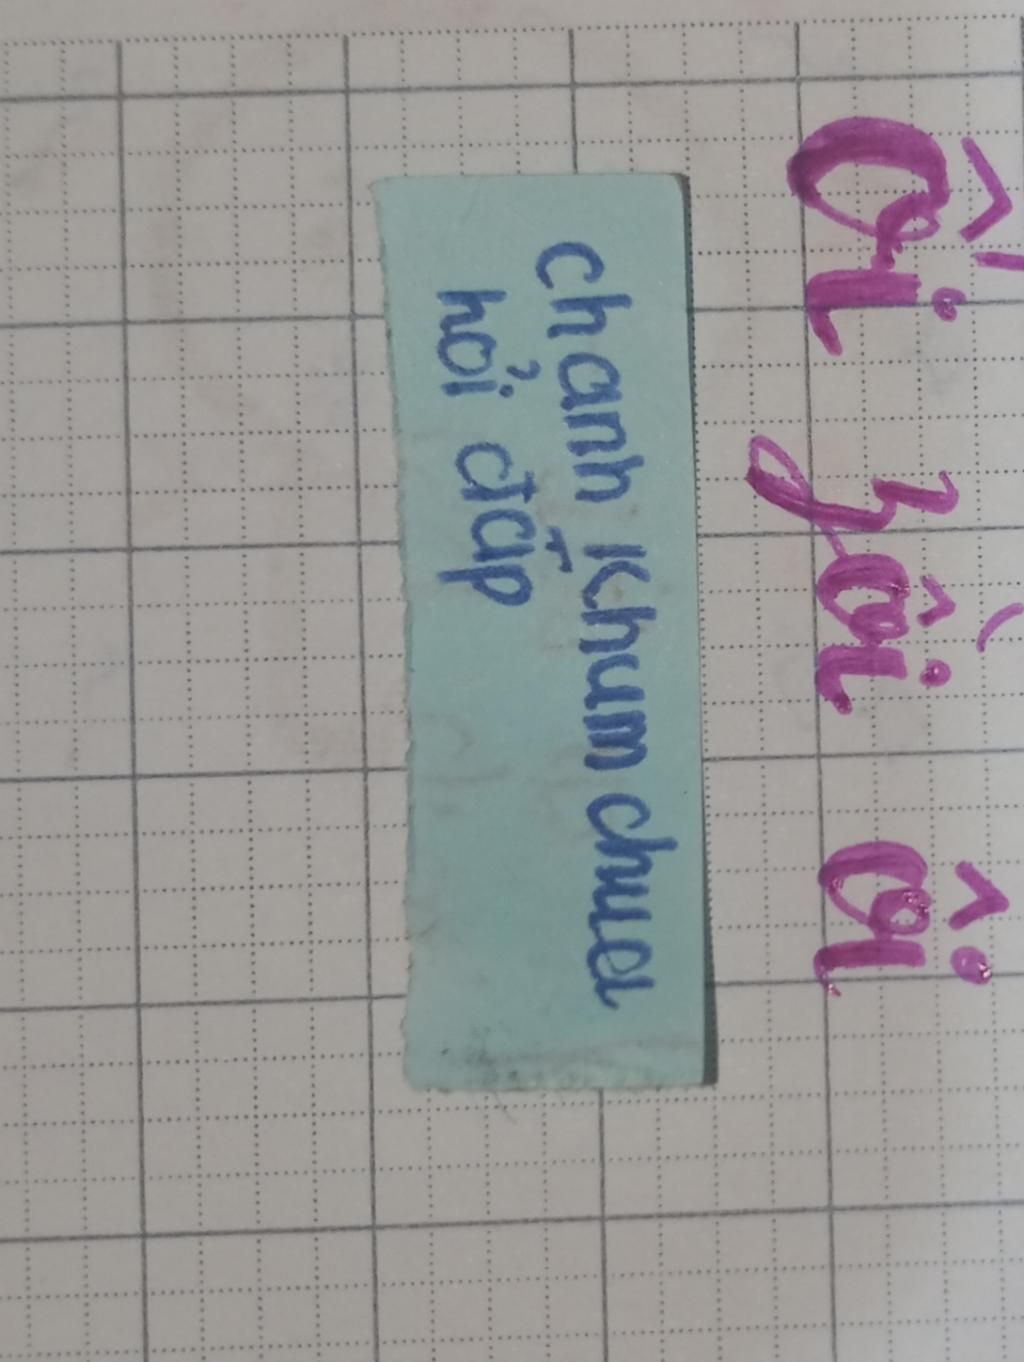 Ối zồi ôi
chanh khum chua
hỏi đáp